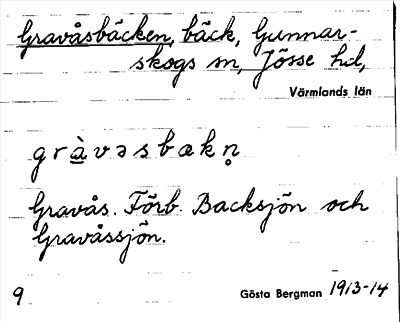 Gravåsbäcken, bäck, Gunnar-
skogs sn, Jösse hd,
Värmlands län
gràvəsbækn̥
Gravås. Förb. Backsjön och
Gravåssjön.
9 Gösta Bergman 1913-14